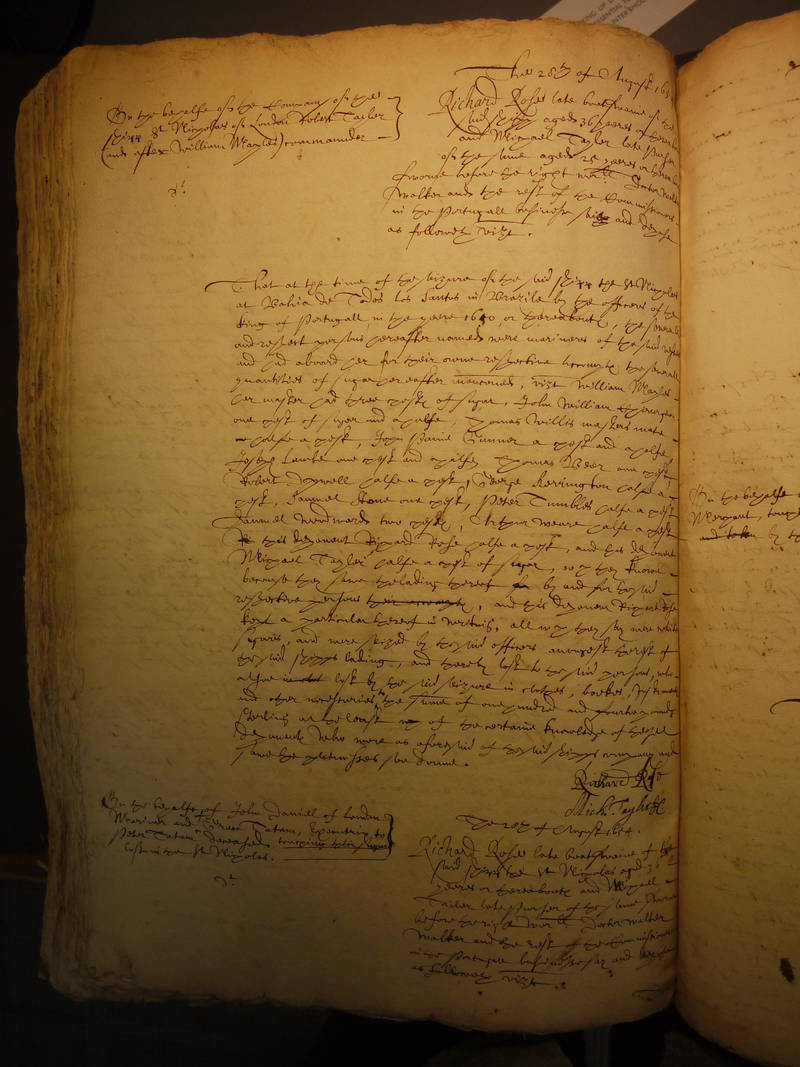 On the behalfe of the Company of the
shipp St Nicholas of London Robert Tayler
(and after William Mayles) commaunder
The 28th of August 165
Richard Rose late boatswaine of the
said shipp aged 36 yeeres or thereab
and Michael Taylor late purser
of the same aged 25 yeeres or thereab
sworne before the right worll Doctor
Walker and the rest of the Commissioners
in the Portugall businesse say and depose
as followeth vizt.
That at the time of the seizure of the said shipp the St Nicholas
at Bahia de Todos los Santos in Brazile by the officers of the
King of Portugall, in the yeere 1650, or thereabouts, the severall
and respective persons hereafter named were mariners of the said
and had aboard her for their owne respective accounts the severall
quantities of sugar hereafter mencioned, vizt William Mayles
her master had three chests of sugar, John William Chirurgeon
one chest of sugar and a halfe, Thomas Willis masters mate
halfe a chest, John Paine Gunner a chest and a halfe,
Joseph Lambe one chest and halfe, Thomas Beer one chest
Robert halfe a chest, George Kerrington halfe a
chest, Samuel Stone one chest, Peter Tumbles halfe a chest
Samuel Woodward two chests, Arthur Weare halfe a chest
this deponent Richard Rose halfe a chest, and his deponent
Michael Tayler halfe a chest of sugar, which they knowe
because they sawe the lading thereof by and for the said
respective persons their accounts, and this deponent Richard Rose
kept a particular thereof in writing, all which they say were white
sugars, and were seized by the said officers amongst the rest of
the said shipps lading, and thereby lost to the said persons, who
alsoe lost by the said seizure in clothes, bookes, Instruments
and other necessaries, to the summe of one hundred and fourtey pounds
sterling at the least of the certaine knowledge of these
deponents who were as aforesaid of the said shipps company and
sawe the premisses soe donne.
Richard Rose
Mich: Taylor
The 28th of August 1654.
On the behalfe of John Daniell of London
Mariner and Tatam, Executrix to
Peter Tatam deceased touching their
losse in the St Nicholas.
Richard Rose late boatswaine of the
said shipp the St Nicholas aged 36
yeeres or thereabouts and Michael
Tailer late Purser of the same sworne
before the right worll Doctor Walter
Walker and the rest of the Commissioners
in the Portugall businesse say and depose
as followeth vizt.
On the behalfe
Merchant, touching
and taken by the